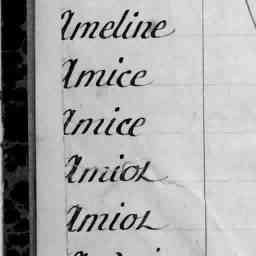 Ameline
Amice
Amice
Amiot
Amiot